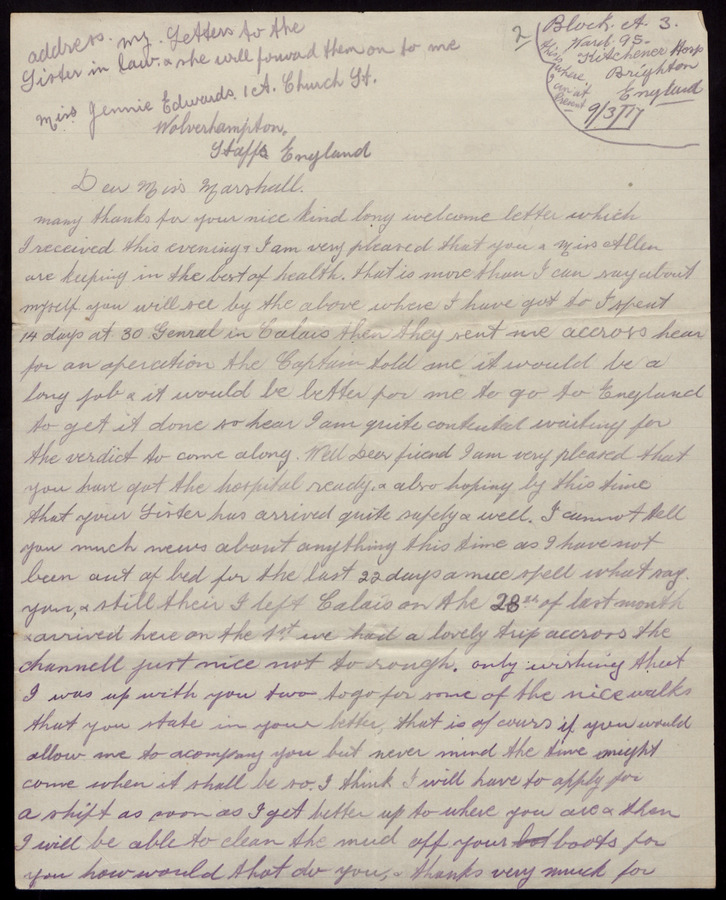 address. my. Letters to the
Sister in law. & she will forward them on to me
Miss Jennie Edwards. 1 ct. Church St.
Wolverhampton.
Staffs England
2
Block. A. 3.
Ward. 95.
Kitchener Hosp
Brighton
England
9/3/17
this is where
I am at
present
Dear Miss Marshall.
many thanks for your nice kind long welcome letter which
I received this evening & I am very pleased that you & Miss Allen
are keeping in the best of health. that is more than I can say about
myself you will see by the above where I have got to I spent
14 days at 30 Genral in Calais then they sent me accross hear
for an operation the Captain told me it would be a
long job & it would be better for me to go to England
to get it done so hear I am quite contental waiting for
the verdict to come along. Well Dear friend I am very pleased that
you have got the hospital ready. & also hoping by this time
that your Sister has arrived quite safely & well. I cannot tell
you much news about anything this time as I have not
been out of bed for the last 22 days a nice spell what say.
you, & still their I left Calais on the 28th of last month
& arrived here on the 1st we had a lovely trip accross the
channell just nice not to rough. only wishing that
I was up with you two to go for some of the nice walks
that you state in your letter, that is of cours if you would
allow me to acompany you but never mind the time might
come when it shall be so. I think I will have to apply for
a shift as soon as I get better up to where you are & then
I will be able to clean the mud off your boots for
you how would that do you, & thanks very much for